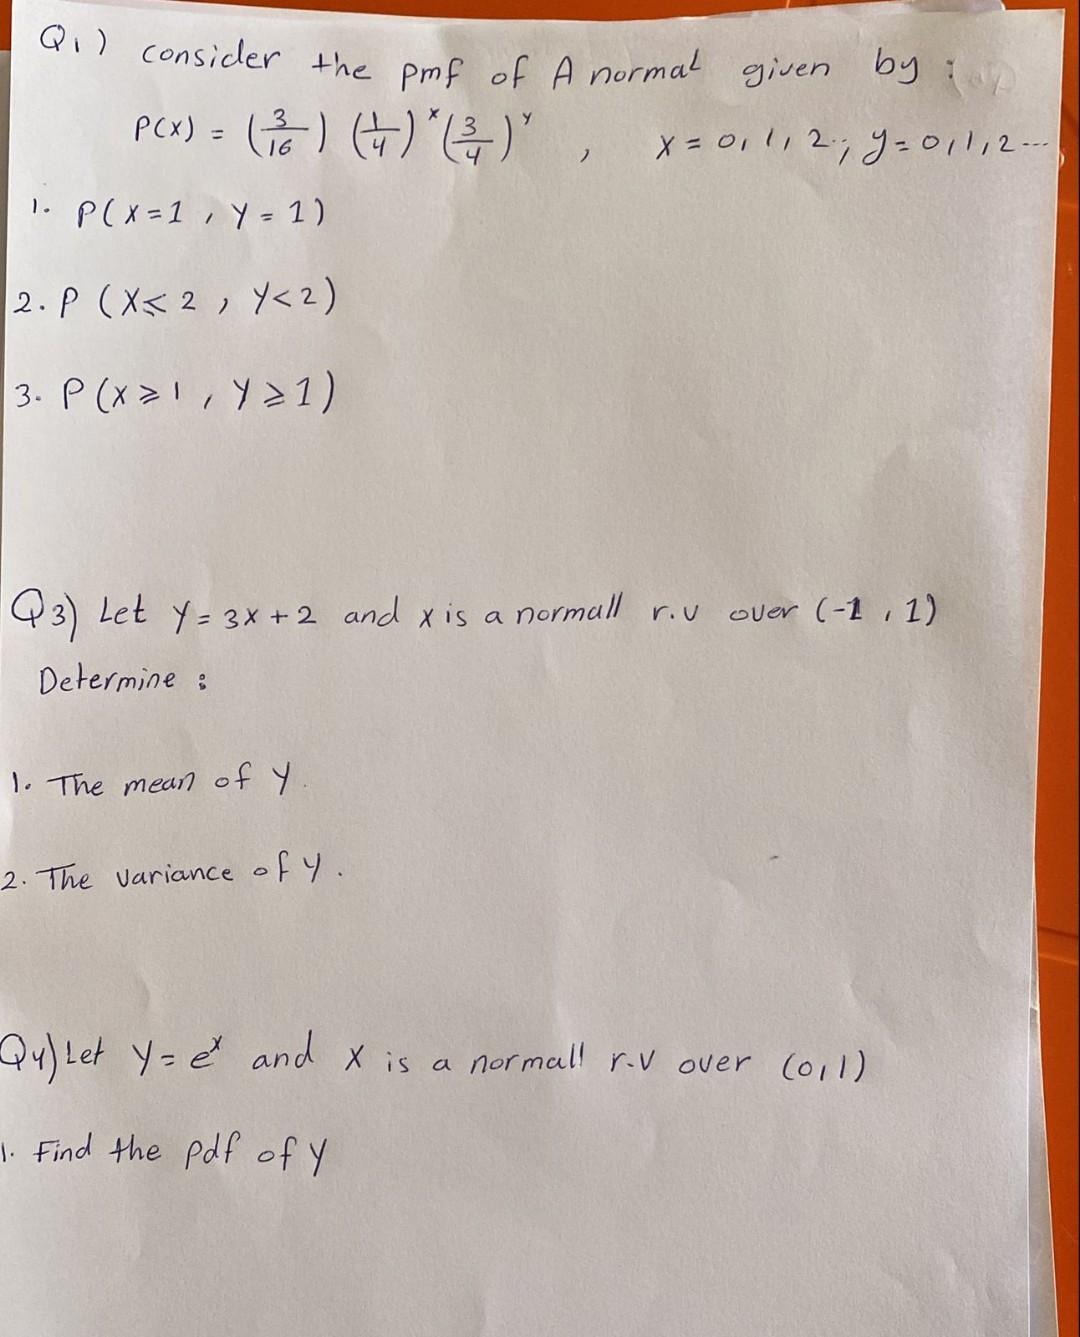 Q1) consider the pmf of A normal given by :
P(x) = (3/16) (1/4)^x (3/4)^y , x = 0, 1, 2..; y = 0, 1, 2 ...
1. P(X=1, Y=1)
2. P (X⩽2, Y<2)
3. P(X⩾1, Y⩾1)
Q3) Let y = 3x + 2 and x is a normall r.v over (-1, 1)
Determine :
1. The mean of y.
2. The variance of y.
Q4) Let y = e^x and X is a normall r.v over (0,1)
1. Find the pdf of y